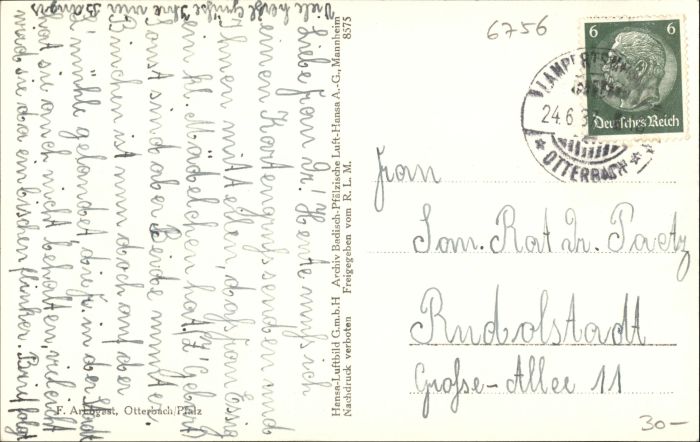 6756
6 6
Deutsches Reich
LAMPERTSMÜHLE
24.6.3
OTTERBACH
Frau
San. Rat Dr. Paetz
Rudolstadt
Große-Allee 11
30-
Hansa-Luftbild G.m.b.H Archiv Badisch-Pfälzische Luft-Hansa A.-G., Mannheim
Nachdruck verboten Freigegeben vom R. L. M. 8575
F. Arbogast, Otterbach/Pfalz
Liebe Frau Dr! Heute muß ich
einen Kartengruß senden und
Ihnen mitteilen, daß Frau Essig
ein kl. Mädelchen hat. Z' Geburt
sonst sind aber Beide munter.
Binchen ist nun doch auf der
L'mühle gelandet dief. in der Stadt
hat sie auch nicht behalten, vielleicht
wird sie da ein bischen flinker. Brief folgt
Viele herzl. Grüße Ihre